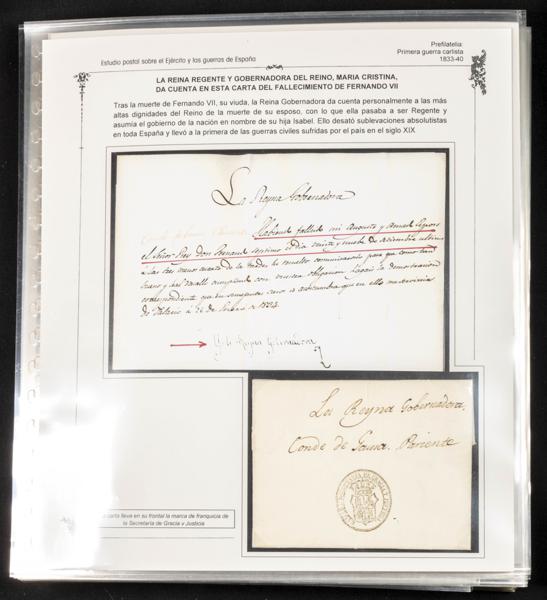 Estudio postal sobre el Ejército y las guerras de España
Prefilatelia:
Primera guerra carlista
1833-40
LA REINA REGENTE Y GOBERNADORA DEL REINO, MARIA CRISTINA,
DA CUENTA EN ESTA CARTA DEL FALLECIMIENTO DE FERNANDO VII
Tras la muerte de Fernando VII, su viuda, la Reina Gobernadora da cuenta personalmente a las más
altas dignidades del Reino de la muerte de su esposo, con lo que ella pasaba a ser Regente y
asumía el gobierno de la nación en nombre de su hija Isabel. Ello desató sublevaciones absolutistas
en toda España y llevó a la primera de las guerras civiles sufridas por el país en el siglo XIX
La Reyna Gobernadora
fallecido mi Augusto y Amado Esposo
el Señor Rey Don Fernando septimo el dia veinte y nueve de setiembre ultimo
à las tres menos cuarto de la tarde, he resuelto comunicaroslo para que como tan
correspondiente que en semejantes casos se acostumbra que en ello me servireis
de Palacio à de Octubre de
Yo la Reyna Gobernadora
La Reyna Gobernadora.
Conde de Pariente
carta lleva en su frontal la marca de franquicia de
la Secretaría de Gracia y Justicia